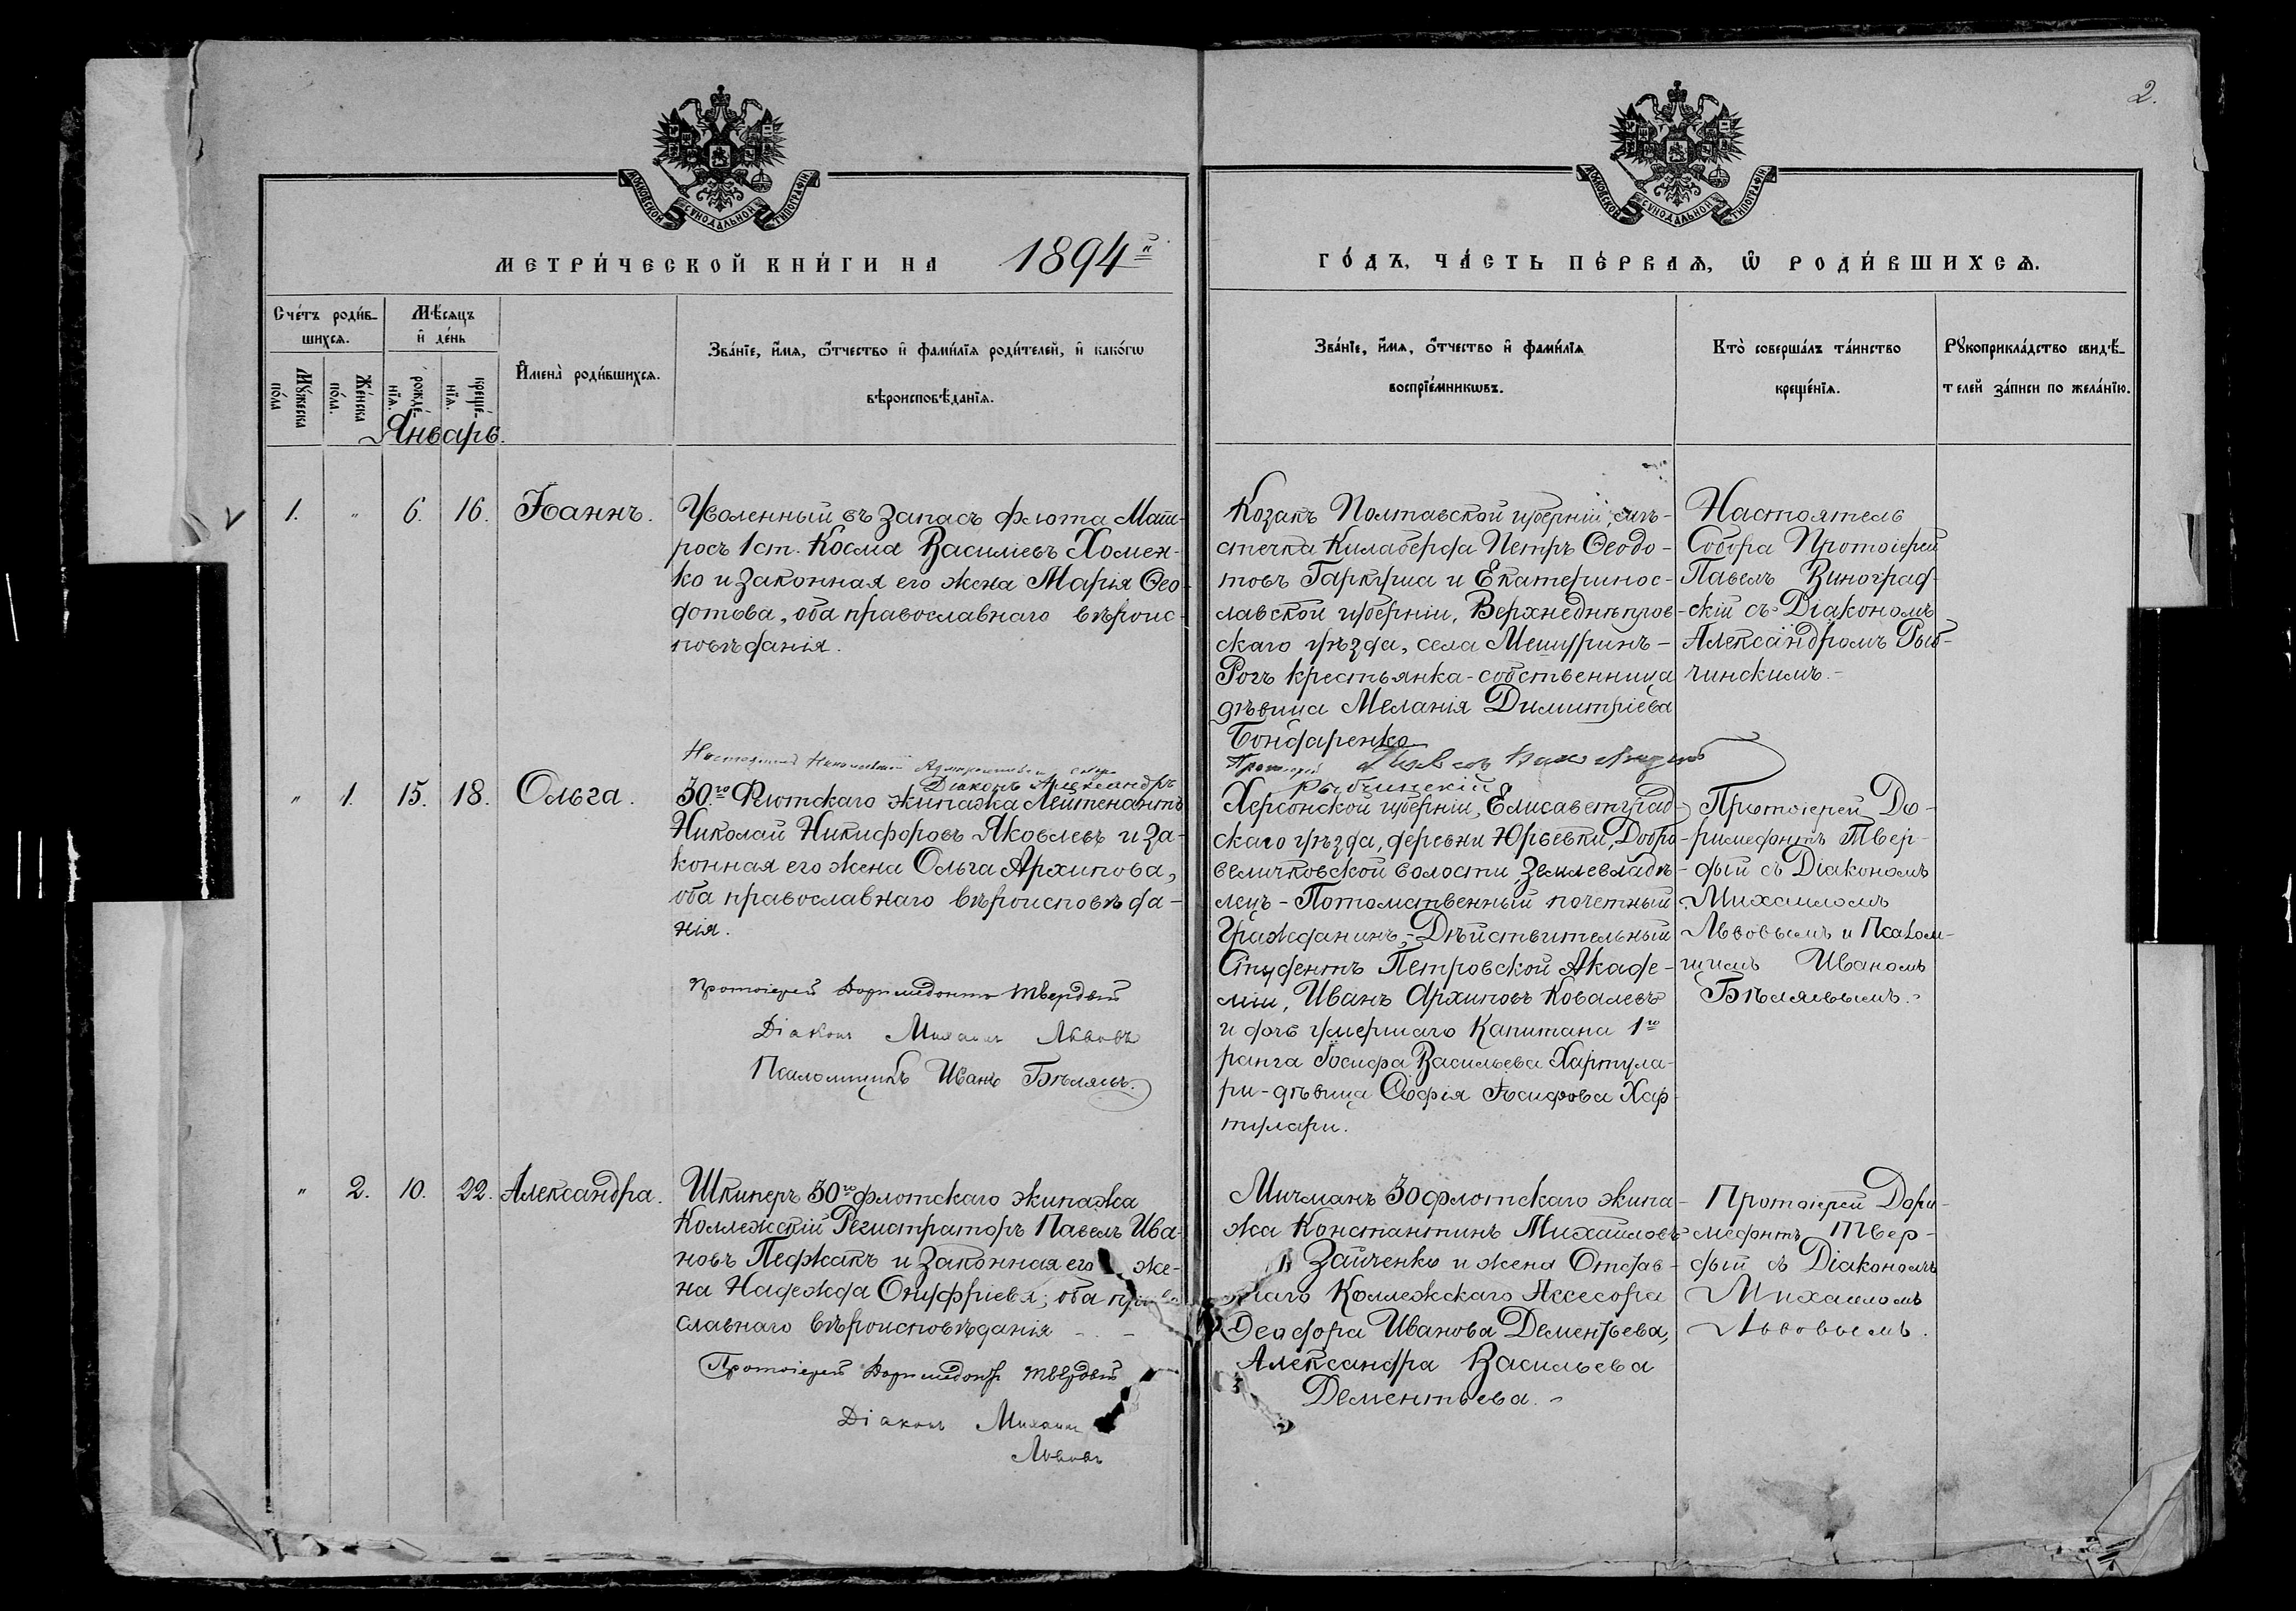 2.
МОСКОВСКОЙ СѴНОДАЛЬНОЙ ТИПОГРАФІИ
МОСКОВСКОЙ СѴНОДАЛЬНОЙ ТИПОГРАФІИ
МЕТРИ́ЧЕСКОЙ КНИ́ГИ НА 1894й
ГО́ДЪ, ЧА́СТЬ ПЕ́РВАѦ, Ѡ РОДИ́ВШИХСѦ.
Сче́тъ роди́в-
шихсѧ.
Мꙋ́жеска
по́ла
Же́нска
по́ла.
Мѣ́сѧцъ
и҆ де́нь
рожде́-
нїѧ.
креще́-
нїѧ.
И҆мена̀ роди́вшихсѧ.
Зва́нїе, и҆́мѧ, ѻ҆́тчество и҆ фами́лїѧ роди́телей, и҆ како́гѡ
вѣроисповѣ́данїѧ.
Зва́нїе, и҆́мѧ, ѻ҆́тчество и҆ фами́лїѧ
воспрїе́мникѡвъ.
Кто̀ соверша́лъ та́инство
креще́нїѧ.
Рꙋкоприкла́дство свидѣ́-
телей за́писи по жела́нїю.
Январь.
1. " 6. 16. Іоаннъ.
Уволенный въ запасъ флота Мат-
росъ 1 ст. Косма Василіевъ Хомен-
ко и законная его жена Марія Ѳео-
дотова, оба православнаго вѣроис-
повѣданія.
Козакъ Полтавской губерніи, мѣ-
стечка Килаберда Петръ Ѳеодо-
товъ Гаркуша и Екатеринос-
лавской губерніи, Верхнеднѣпров-
скаго уѣзда, села Мишуринъ-
Рогъ крестьянка-собственница
дѣвица Меланія Димитріева
Бондаренко
Настоятель
Собора Протоіерей
Павелъ Виноград-
скій съ Діакономъ
Александромъ Рыб-
чинскимъ.-
Настоятель Николаевскаго Адмиралтейскаго Собора
Протоіерей Павелъ
Діаконъ Александръ
Рыбчинскій
" 1. 15. 18. Ольга.
30.го Флотскаго экипажа Лейтенантъ
Николай Никифоровъ Яковлевъ и за-
конная его жена Ольга Архипова,
оба православнаго вѣроисповѣда-
нія.
Протоіерей Доримедонтъ Твердый
Діаконъ Михаилъ Львовъ
Псаломщикъ Иванъ Бѣляевъ.
Херсонской губерніи, Елисаветград-
скаго уѣзда, деревни Юрьевки, Добро-
величковской волости, Землевладѣ-
лецъ - Потомственный почетный
Гражданинъ, - Дѣйствительный
Студентъ Петровской Акаде-
міи, Иванъ Архиповъ Ковалевъ
и дочь умершаго Капитана 1го
ранга Іосифа Васильева Хартула-
ри - дѣвица Софія Іосифова Хар-
тулари.
Протоіерей До-
римедонтъ Твер-
дый съ Діакономъ
Михаиломъ
Львовымъ и Псалом-
щикъ Иваномъ
Бѣляевымъ.-
" 2. 10. 22. Александра.
Шкиперъ 30го флотскаго экипажа
Коллежскій Регистраторъ Павелъ Ива-
новъ Педжакъ и законная его же-
на Надежда Онуфріева; оба право-
славнаго вѣроисповѣданія - . -
Протоіерей Доримедонтъ Твердый
Діаконъ Михаилъ
Львовъ
Мичманъ 30 флотскаго экипа-
жа Константинъ Михаиловъ
Зайченко и жена Отстав-
наго Коллежскаго Ассесора
Ѳеодора Иванова Дементьева,
Александра Васильева
Дементьева.-
Протоіерей Дори-
медонтъ Твер-
дый съ Діакономъ
Михаиломъ
Львовымъ.